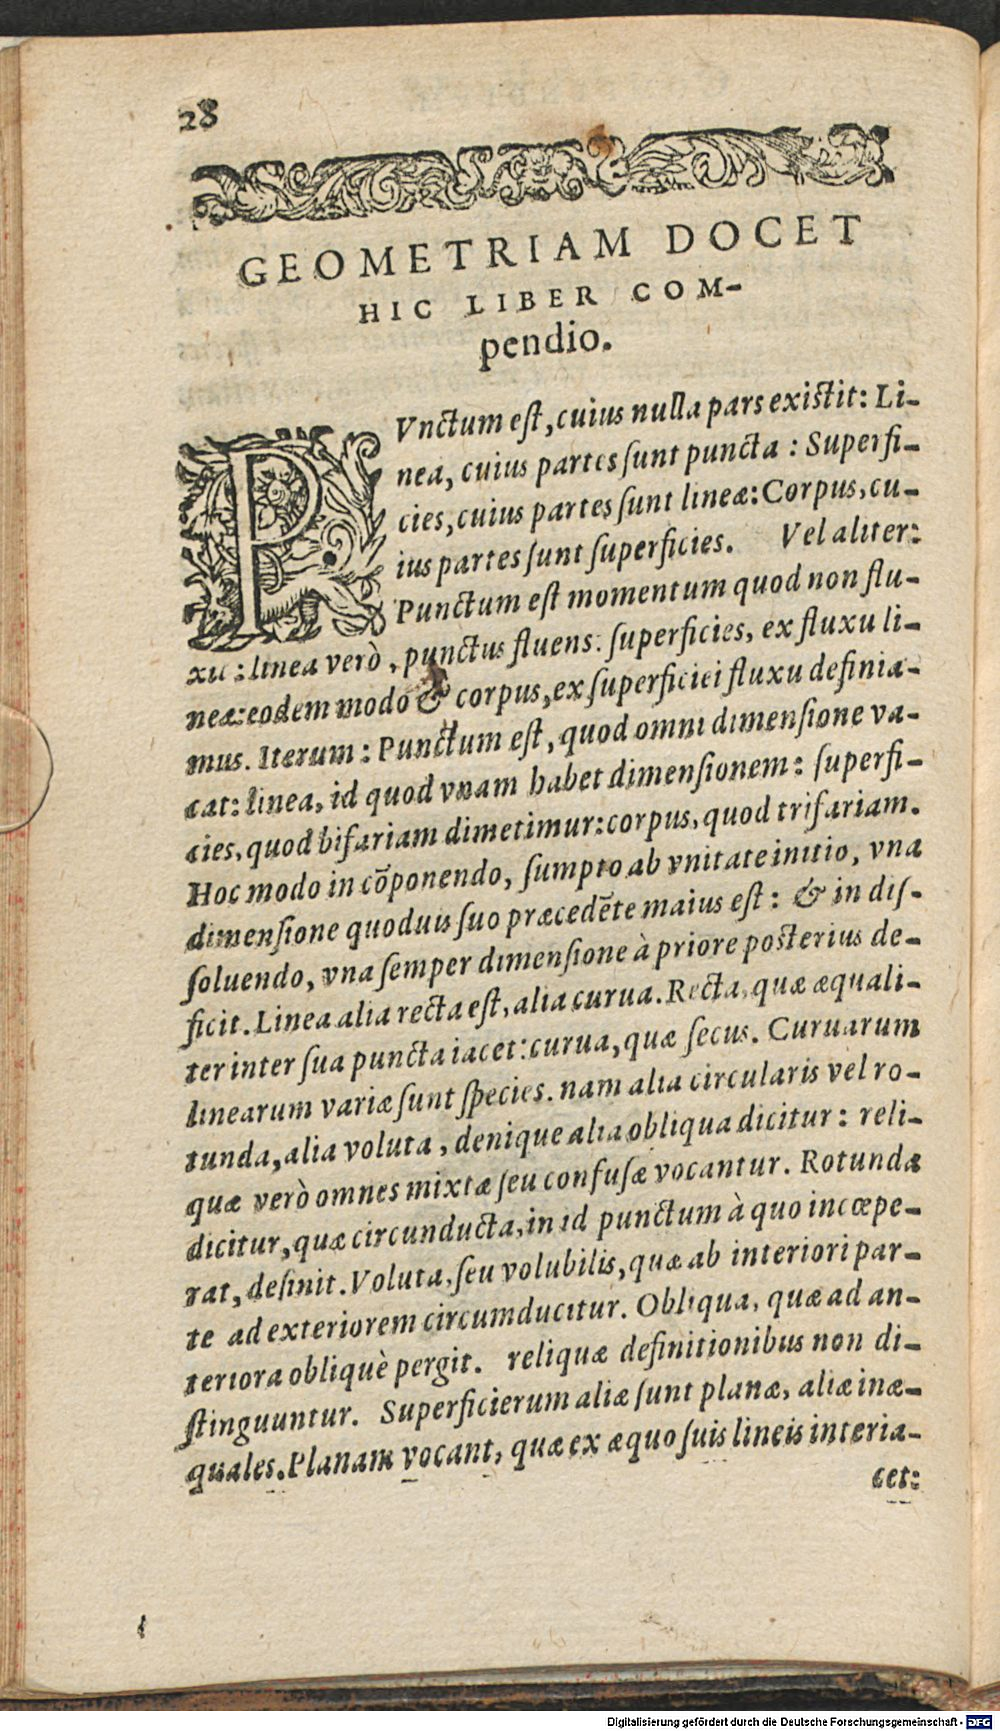 28
GEOMETRIAM DOCET
HIC LIBER COM-
pendio.
PVnctum eſt, cuius nulla pars existit: Li-
nea, cuius partes ſunt puncta : Superfi-
cies, cuius partes ſunt lineæ: Corpus, cu-
ius partes ſunt ſuperficies. Vel aliter:
Punctum eſt momentum quod non flu-
xit: linea verò, punctus fluens: ſuperficies, ex fluxu li-
neæ: eodem modo & corpus, ex ſuperficiei fluxu definia-
mus. Iterum : Punctum eſt, quod omni dimenſione va-
cat: linea, id quod vnam habet dimenſionem: ſuperfi-
cies, quod bifariam dimetimur: corpus, quod trifariam.
Hoc modo in cõponendo, ſumpto ab vnitate initio, vna
dimenſione quoduis ſuo præcedẽte maius eſt: & in diſ-
ſoluendo, vna ſemper dimenſione à priore posterius de-
ficit. Linea alia recta eſt, alia curua. Recta, quæ æquali-
ter inter ſua puncta iacet: curua, quæ ſecus. Curuarum
linearum variæ ſunt ſpecies. nam alia circularis vel ro-
tunda, alia voluta, denique alia obliqua dicitur: reli-
quæ verò omnes mixtæ ſeu confuſæ vocantur. Rotunda
dicitur, quæ circunducta, in id punctum à quo incœpe-
rat, deſinit. Voluta, ſeu volubilis, quæ ab interiori par-
te ad exteriorem circumducitur. Obliqua, quæ ad an-
teriora obliquè pergit. reliquæ definitionibus non di-
ſtinguuntur. Superficierum aliæ ſunt planæ, aliæ inæ-
quales. Planam vocant, quæ ex æquo ſuis lineis interia-
cet:
Digitalisierung gefördert durch die Deutsche Forschungsgemeinschaft - DFG